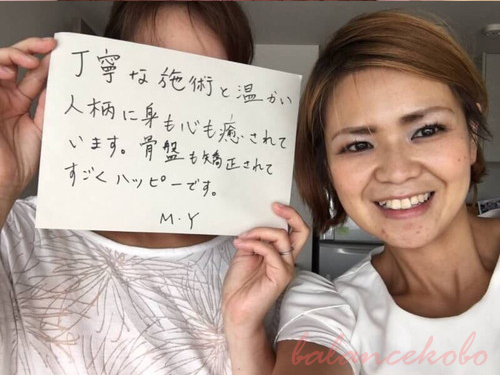 丁寧な施術と温かい
人柄に身も心も癒されて
います。骨盤も矯正されて
すごくハッピーです。
M.Y
balancekobo